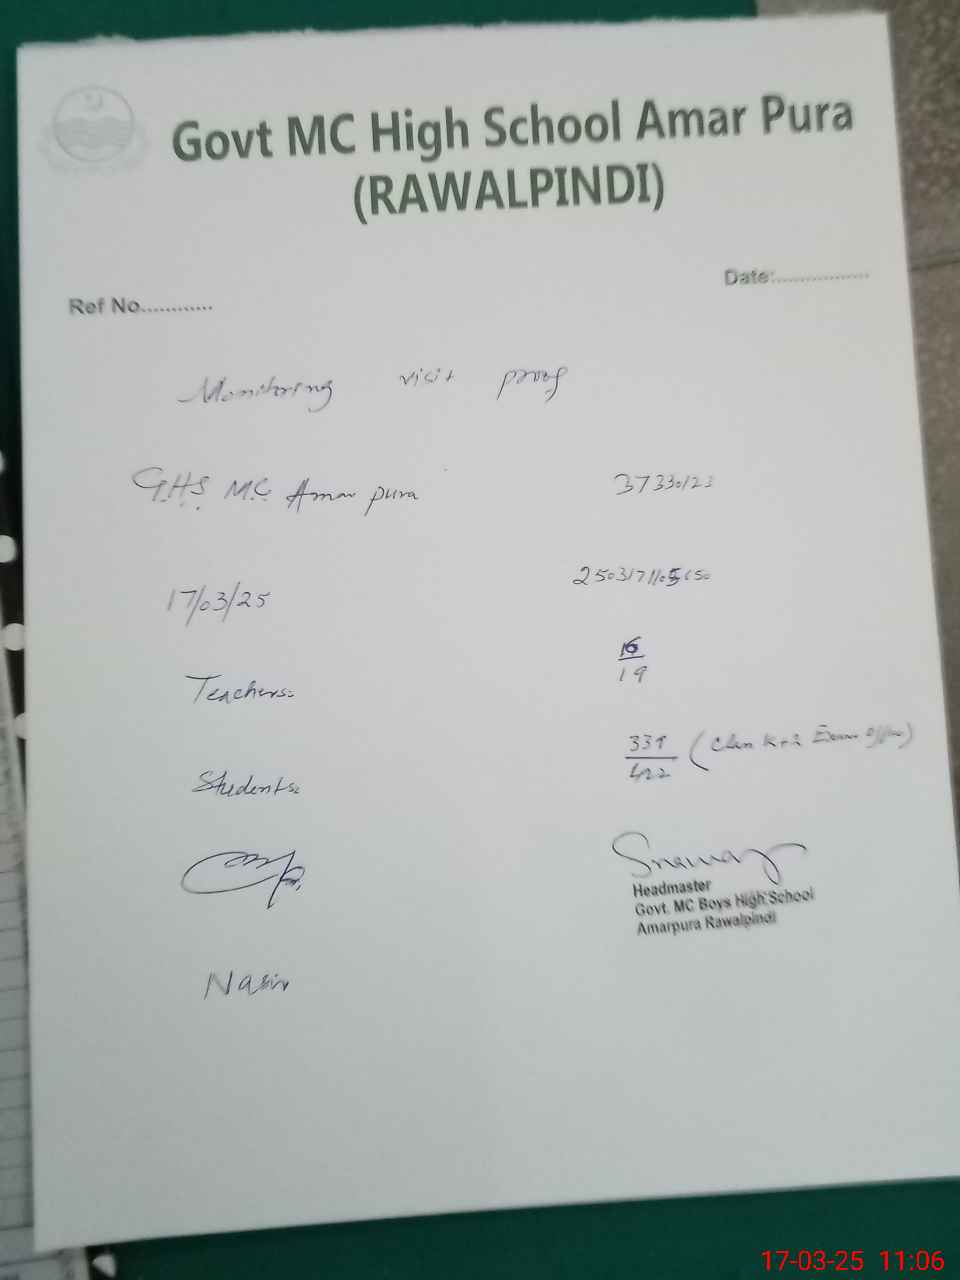 Govt MC High School Amar Pura
(RAWALPINDI)
Date:.................
Ref No............
Monitoring visit proof
G.H.S M.C Amar pura 37330123
17/03/25
Teachers: 16/19
Students: 339/422 (
Headmaster
Govt. MC Boys High School
Amarpura Rawalpindi
Nasir
17-03-25 11:06